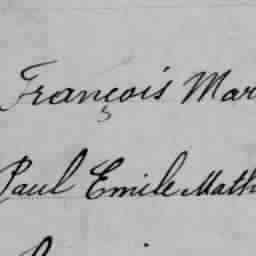 François Mar
Paul Emile Math